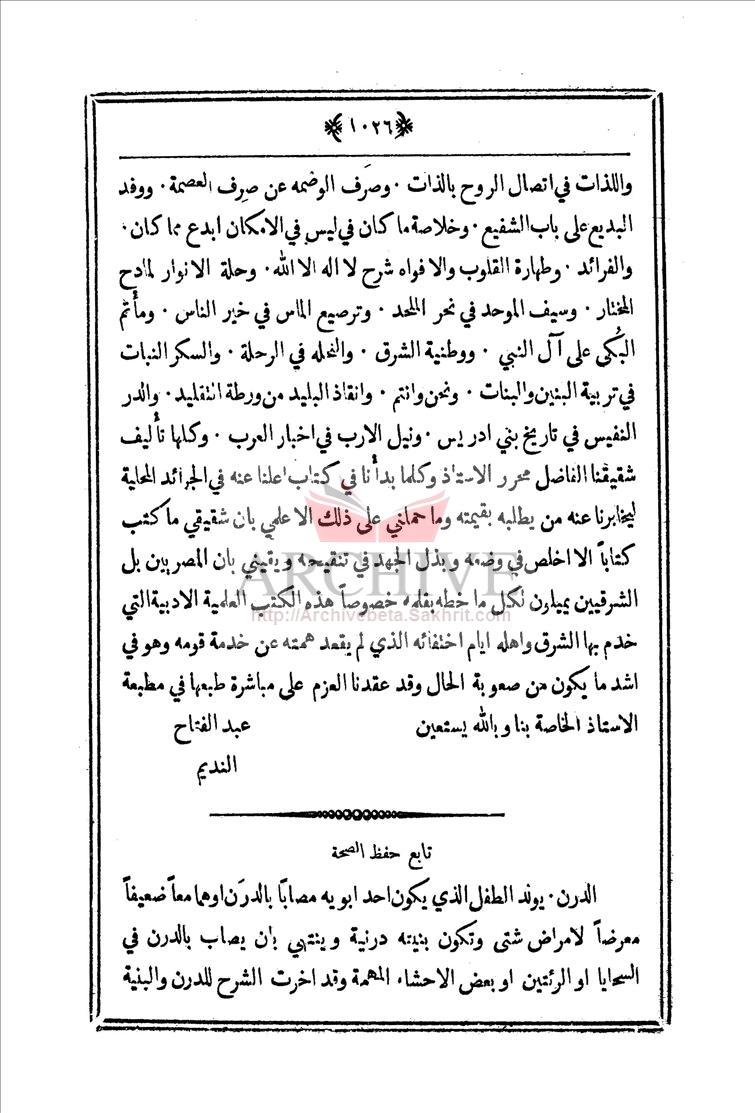 ١٠٢٦
واللذات في اتصال الروح بالذات · وصَرف الوضمه عن صِرف العصمة · ووفد
البديع على باب الشفيع · وخلاصة ما كان في ليس في الامكان ابدع مما كان ·
والفرائد · وطهارة القلوب والافواه شرح لا اله الا الله · وحلة الانوار لمادح
المختار · وسيف الموحد في نحر الملحد · وترصيع الماس في خير الناس · ومأتم
البكى على آل النبي · ووطنية الشرق · والنحله في الرحلة · والسكر النبات
في تربية البنين والبنات · ونحن وانتم · وانقاذ البليد من ورطة التقليد · والدر
النفيس في تاريخ بني ادريس · ونيل الارب في اخبار العرب · وكلها تأليف
شقيقنا الفاضل محرر الاستاذ وكلما بدأنا في كتاب اعلنا عنه في الجرائد المحلية
ليخابرنا عنه من يطلبه بقيمته وما حملني على ذلك الا علمي بان شقيقي ما كتب
كتاباً الا اخلص في وضعه وبذل الجهد في تنقيحه ويقيني بان المصريين بل
الشرقيين يميلون لكل ما خطه بقلمه خصوصاً هذه الكتب العلمية الادبية التي
خدم بها الشرق واهله ايام اختفائه الذي لم يقعد همته عن خدمة قومه وهو في
اشد ما يكون من صعوبة الحال وقد عقدنا العزم على مباشرة طبعها في مطبعة
الاستاذ الخاصة بنا وبالله يستعين عبد الفتاح
النديم
تابع حفظ الصحة
الدرن · يولد الطفل الذي يكون احد ابويه مصابًا بالدرَن اوهما معاً ضعيفاً
معرضاً لامراض شتى وتكون بنيته درنية وينتهي بان يصاب بالدرن في
السحايا او الرئتين او بعض الاحشاء المهمة وقد اخرت الشرح للدرن والبنية
ARCHIVE
http://Archivebeta.Sakhrit.com